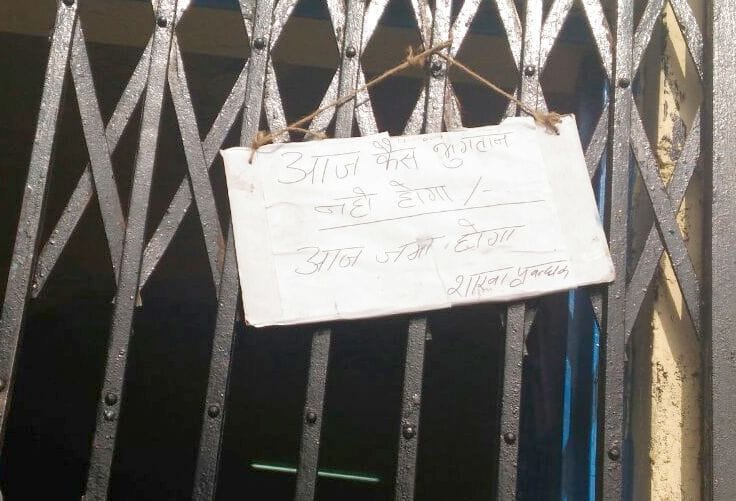 आज कैस भुगतान
नही होगा /-
आज जमा होगा
शाखा प्रबन्धक